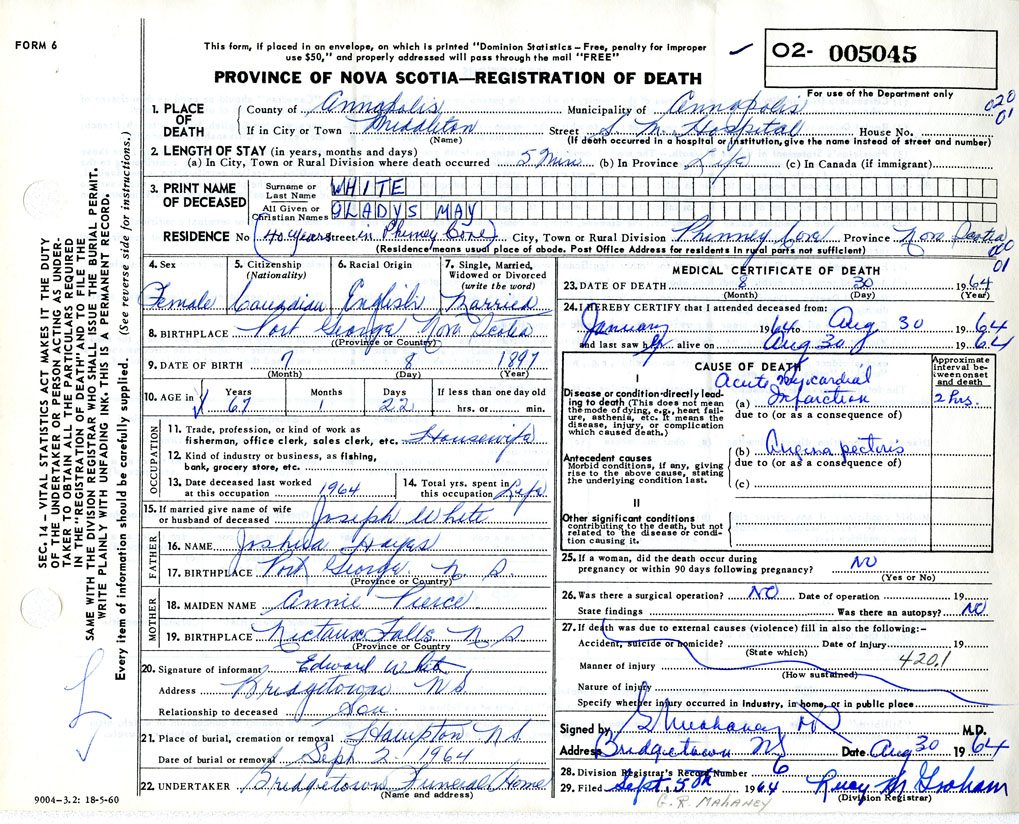 FORM 6
This form, if placed in an envelope, on which is printed "Dominion Statistics – Free, penalty for improper
use $50," and properly addressed will pass through the mail "FREE"
O2- 005045
For use of the Department only
PROVINCE OF NOVA SCOTIA—REGISTRATION OF DEATH
020
01
1. PLACE OF DEATH
County of Annapolis Municipality of Annapolis
If in City or Town Middleton Street S. M. Hospital House No.
(Name) (If death occurred in a hospital or institution, give the name instead of street and number)
2. LENGTH OF STAY (in years, months and days)
(a) In City, Town or Rural Division where death occurred 5 Min (b) In Province Life (c) In Canada (if immigrant)
3. PRINT NAME OF DECEASED
Surname or Last Name WHITE
All Given or Christian Names GLADYS MAY
RESIDENCE No (40 years street in Phinney Cove) City, Town or Rural Division Phinney Cove Province Nova Scotia
(Residence means usual place of abode. Post Office Address for residents in rural parts not sufficient)
01
4. Sex Female
5. Citizenship (Nationality) Canadian
6. Racial Origin English
7. Single, Married, Widowed or Divorced (write the word) Married
8. BIRTHPLACE Port George Nova Scotia
(Province or Country)
9. DATE OF BIRTH 7 8 1897
(Month) (Day) (Year)
10. AGE in Years 67 Months 1 Days 22 If less than one day old hrs. or min.
OCCUPATION
11. Trade, profession, or kind of work as fisherman, office clerk, sales clerk, etc. Housewife
12. Kind of industry or business, as fishing, bank, grocery store, etc.
13. Date deceased last worked at this occupation 1964
14. Total yrs. spent in this occupation Life
15. If married give name of wife or husband of deceased Joseph White
FATHER
16. NAME Joshua Hayes
17. BIRTHPLACE Port George N. S.
(Province or Country)
MOTHER
18. MAIDEN NAME Annie Pierce
19. BIRTHPLACE Nictaux Falls N S
(Province or Country
20. Signature of informant Edward White
Address Bridgetown N S.
Relationship to deceased Son.
21. Place of burial, cremation or removal Hampton N S.
Date of burial or removal Sept 2 - 1964
22. UNDERTAKER Bridgetown Funeral Home
(Name and address)
9004-3.2: 18-5-60
MEDICAL CERTIFICATE OF DEATH
23. DATE OF DEATH 8 30 1964
(Month) (Day) (Year)
24. I HEREBY CERTIFY that I attended deceased from:
January 1964 to Aug 30 1964
and last saw her alive on Aug 30 1964
CAUSE OF DEATH
Approximate interval between onset and death
I
Disease or condition directly leading to death (This does not mean the mode of dying, e.g., heart failure, asthenia, etc. It means the disease, injury, or complication which caused death.)
(a) Acute Myocardial Infarction 2 hrs.
due to (or as a consequence of)
Antecedent causes
Morbid conditions, if any, giving rise to the above cause, stating the underlying condition last.
(b) Angina pectoris
due to (or as a consequence of)
(c)
II
Other significant conditions contributing to the death, but not related to the disease or condition causing it.
25. If a woman, did the death occur during pregnancy or within 90 days following pregnancy? NO
(Yes or No)
26. Was there a surgical operation? NO Date of operation 19
State findings Was there an autopsy? NO
27. If death was due to external causes (violence) fill in also the following:–
Accident, suicide or homicide? Date of injury 19
(State which) 4201
Manner of injury
(How sustained)
Nature of injury
Specify whether injury occurred in Industry, in home, or in public place
Signed by G R Mahaney M.D.
Address Bridgetown NS Date Aug 30 1964
28. Division Registrar's Record Number 6
29. Filed Sept 5th 1964 Lucy M Graham
(Division Registrar)
G. R. MAHANEY
SEC. 14 – VITAL STATISTICS ACT MAKES IT THE DUTY
OF THE UNDERTAKER OR PERSON ACTING AS UNDER-
TAKER TO OBTAIN ALL THE PARTICULARS REQUIRED
IN THE "REGISTRATION OF DEATH" AND TO FILE THE
SAME WITH THE DIVISION REGISTRAR WHO SHALL ISSUE THE BURIAL PERMIT.
WRITE PLAINLY WITH UNFADING INK. THIS IS A PERMANENT RECORD.
Every item of information should be carefully supplied. (See reverse side for instructions.)